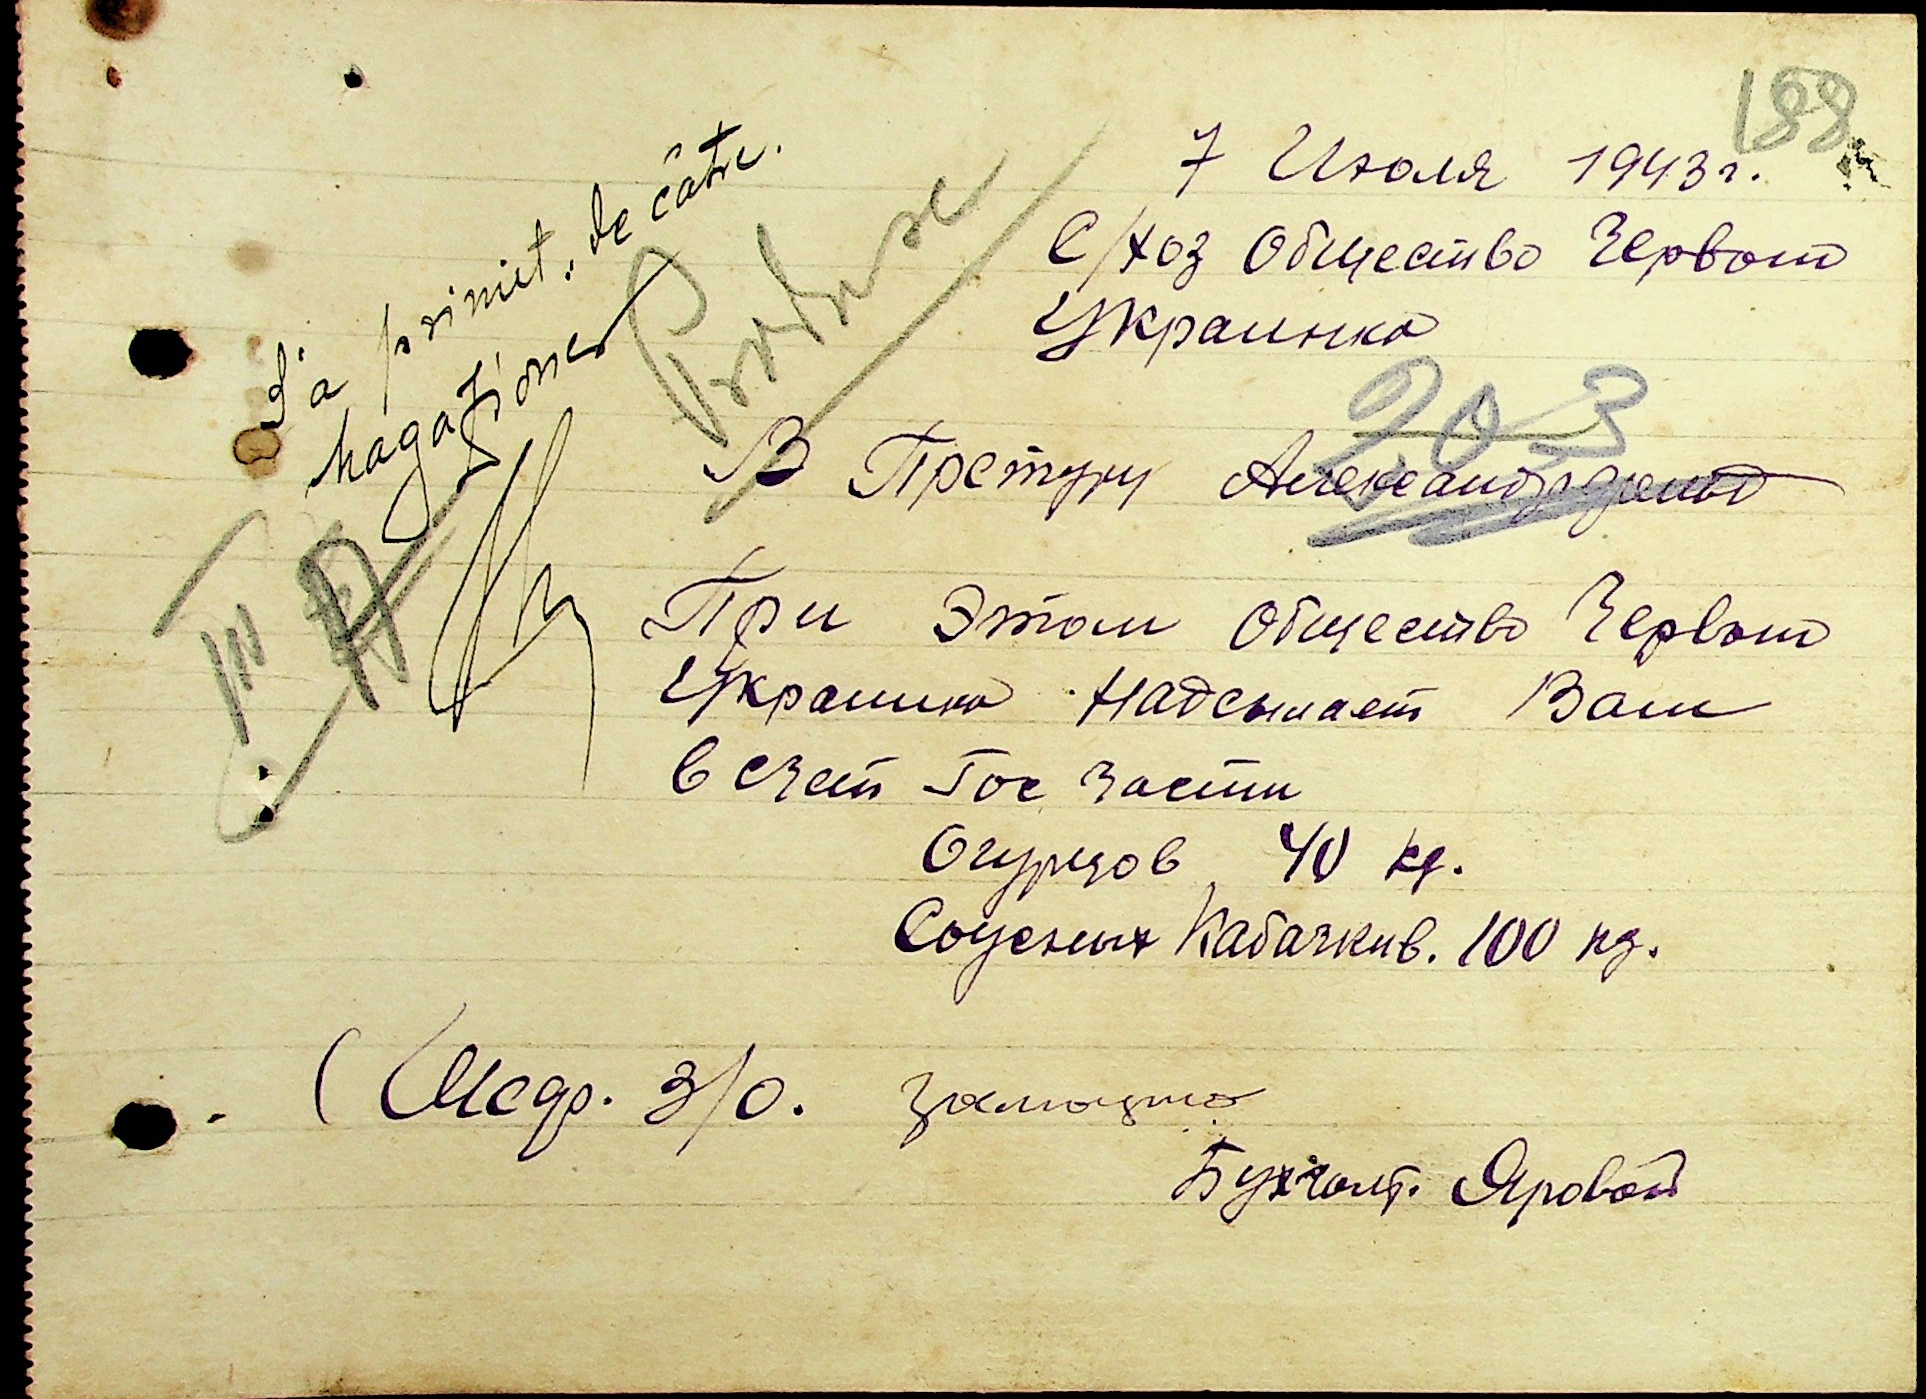 188
7 Июля 1943 г.
С/хоз Общество Червона
Украинка
S'a primit. de către.
magazioner
203
В Претуру Александрфельд
При Этом Общество Червона
Украинка Надсылает Вам
в счет Гос Части
Огурцов 40 кг.
Соусных Кабачкив. 100 кг.
Бухгалт. Яровой